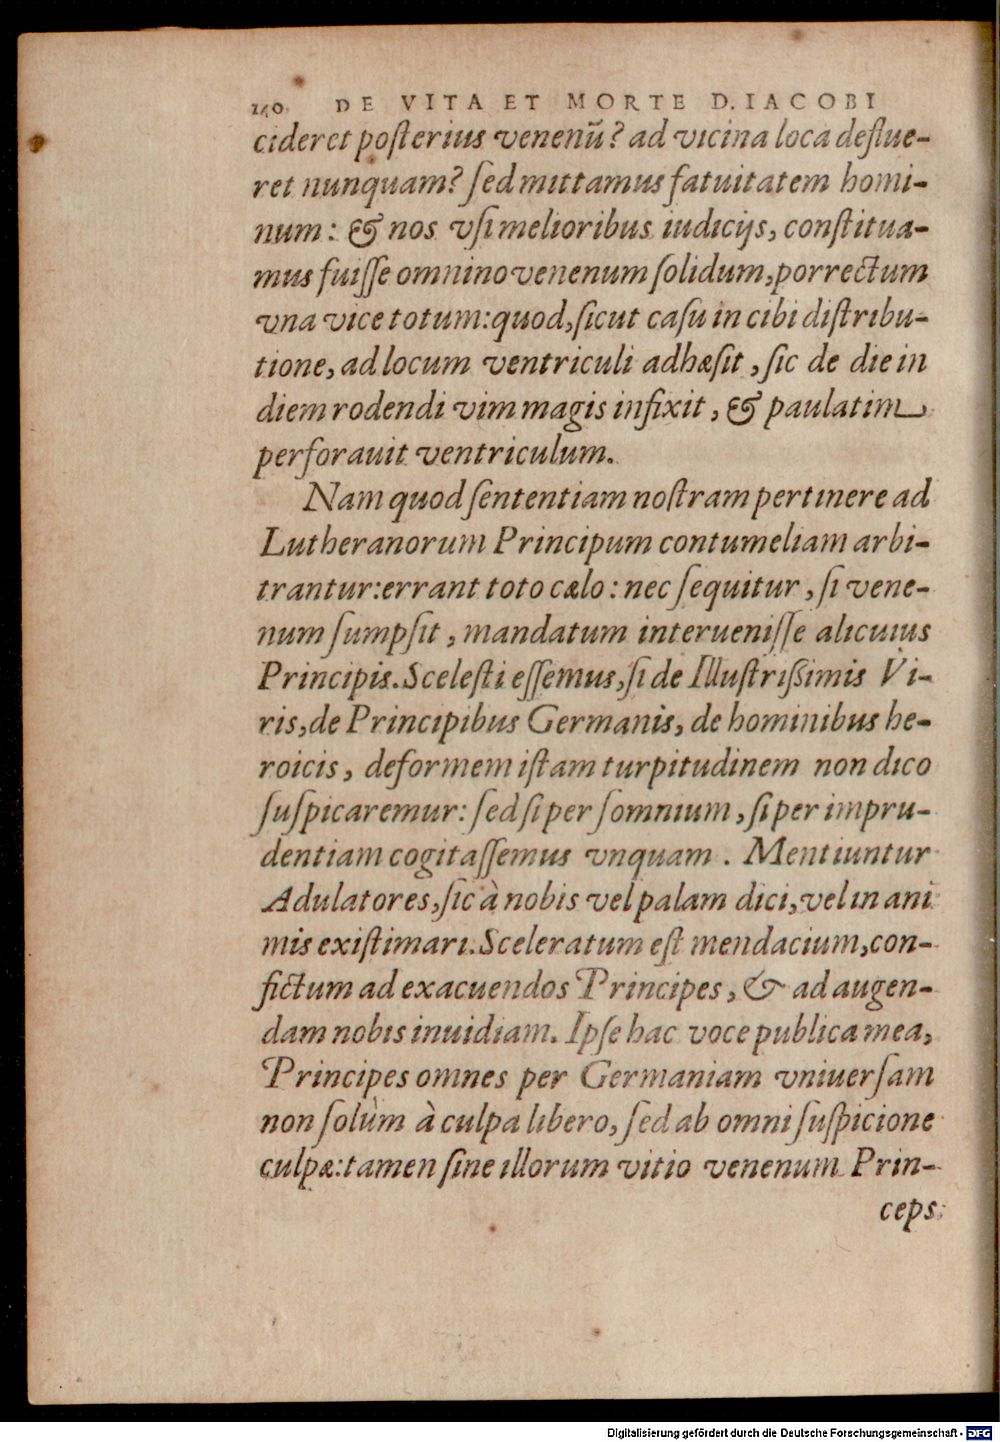 140 DE VITA ET MORTE D. IACOBI
cideret posterius venenũ? ad vicina loca deflue-
ret nunquam? sed mittamus fatuitatem homi-
num: & nos vsi melioribus iudicijs, constitua-
mus fuisse omnino venenum solidum, porrectum
vna vice totum: quod, sicut casu in cibi distribu-
tione, ad locum ventriculi adhæsit, sic de die in
diem rodendi vim magis infixit, & paulatim
perforauit ventriculum.
Nam quod sententiam nostram pertinere ad
Lutheranorum Principum contumeliam arbi-
trantur: errant toto cælo: nec sequitur, si vene-
num sumpsit, mandatum interuenisse alicuius
Principis. Scelesti essemus, si de Illustrißimis Vi-
ris, de Principibus Germanis, de hominibus he-
roicis, deformem istam turpitudinem non dico
suspicaremur: sed si per somnium, si per impru-
dentiam cogitassemus vnquam. Mentiuntur
Adulatores, sic à nobis vel palam dici, vel in ani
mis existimari. Sceleratum est mendacium, con-
fictum ad exacuendos Principes, & ad augen-
dam nobis inuidiam. Ipse hac voce publica mea,
Principes omnes per Germaniam vniuersam
non solùm à culpa libero, sed ab omni suspicione
culpæ: tamen sine illorum vitio venenum Prin-
ceps
Digitalisierung gefördert durch die Deutsche Forschungsgemeinschaft - DFG